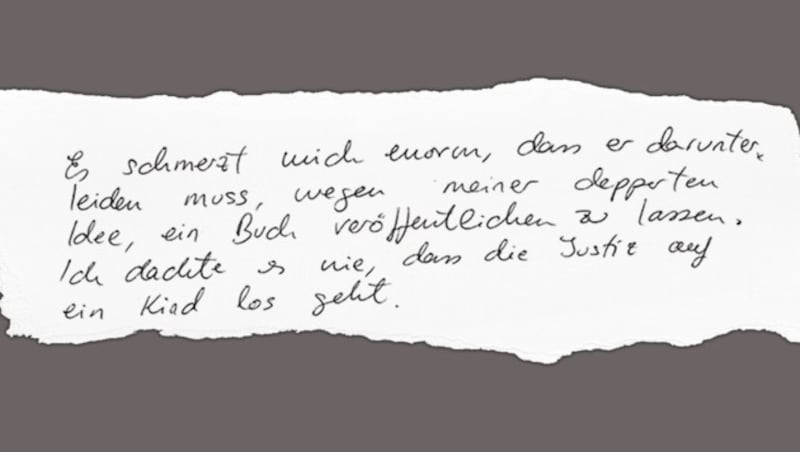 Es schmerzt mich enorm, dass er darunter
leiden muss, wegen meiner depperten
Idee, ein Buch veröffentlichen zu lassen.
Ich dachte es nie, dass die Justiz auf
ein Kind los geht.